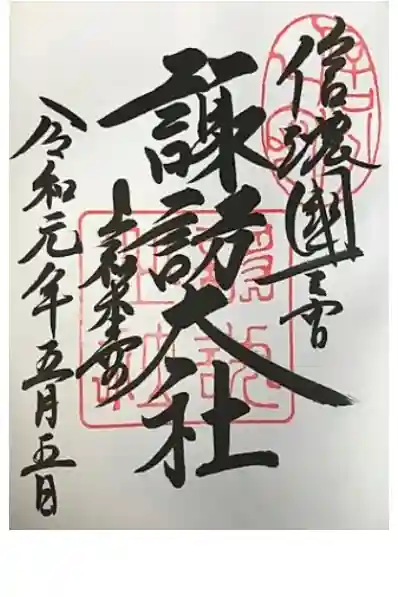 信濃國一之宮
諏訪大社
上社本宮
令和元年五月五日